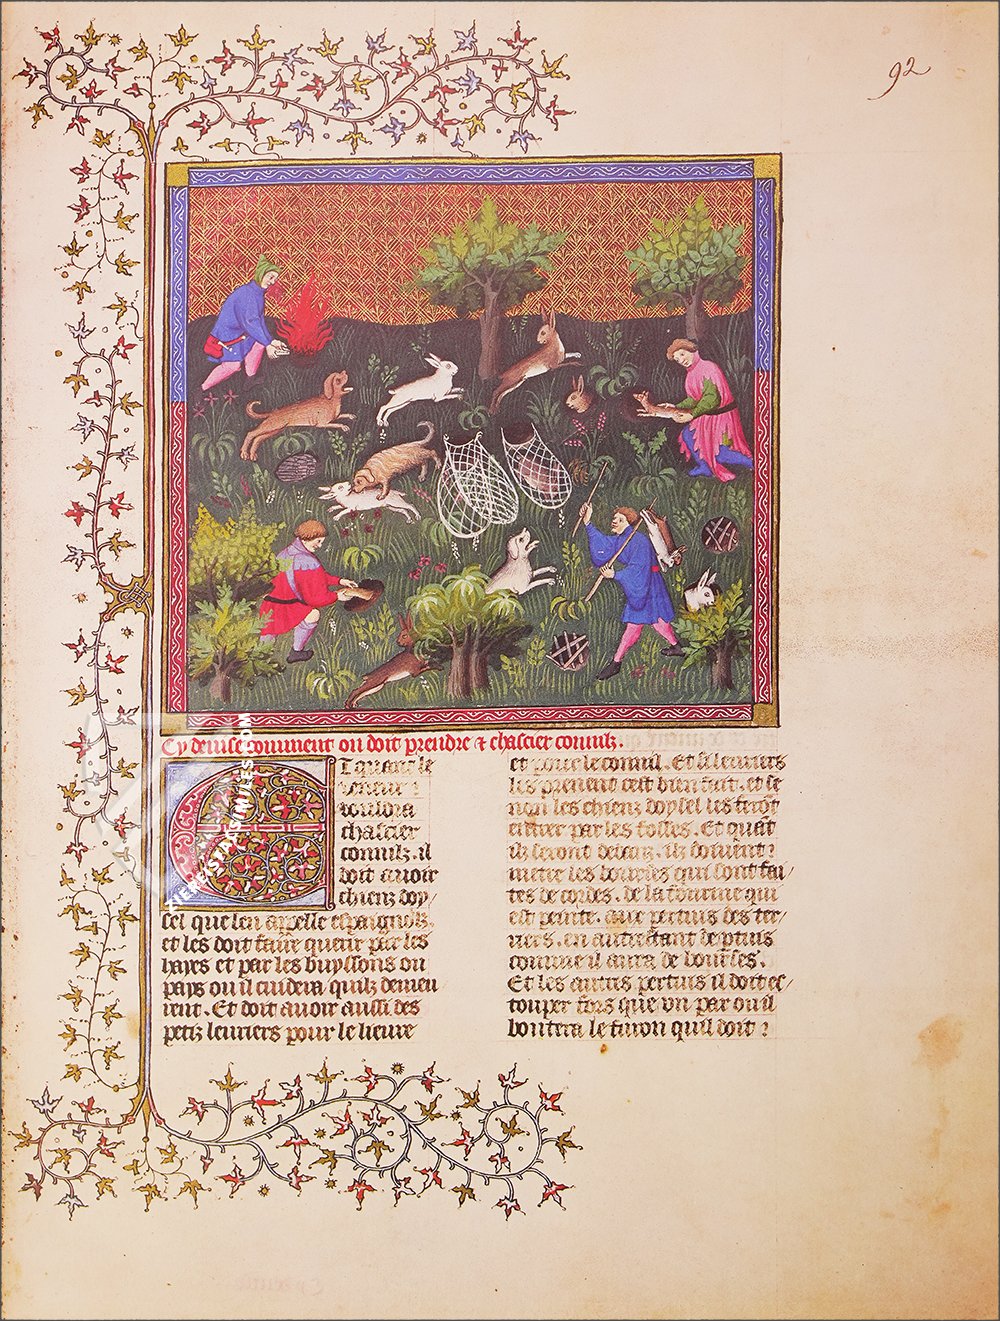 92
Cy deuise comment on doit prendre & chascier connilz.
Et quant le
veneur
vouldra
chascier
connilz. il
doit auoir
chienz doy/
sel que len appelle espaignolz.
et les doit faire querir par les
hayes et par les buyssons ou
pays ou il cuidera quilz demeu
rent. Et doit auoir aussi des
petiz leuriers pour le lieure
et pour le connil. Et se leuriers
les prenent cest bien fait. et se
non les chienz doysel les ferot
entrer par les fosses. Et quat
ilz seront dedanz. ilz doiuent
metre les bourses qui sont fai/
tes de cordes. de la fourme qui
est peinte. aux pertuis des ter/
riers. en autretant de ptuis
comme il aura de bourses.
Et les autres pertuis il doit es/
touper fors que un par ou il
boutera le furon quil doit
ZIEREIS FACSIMILES.COM